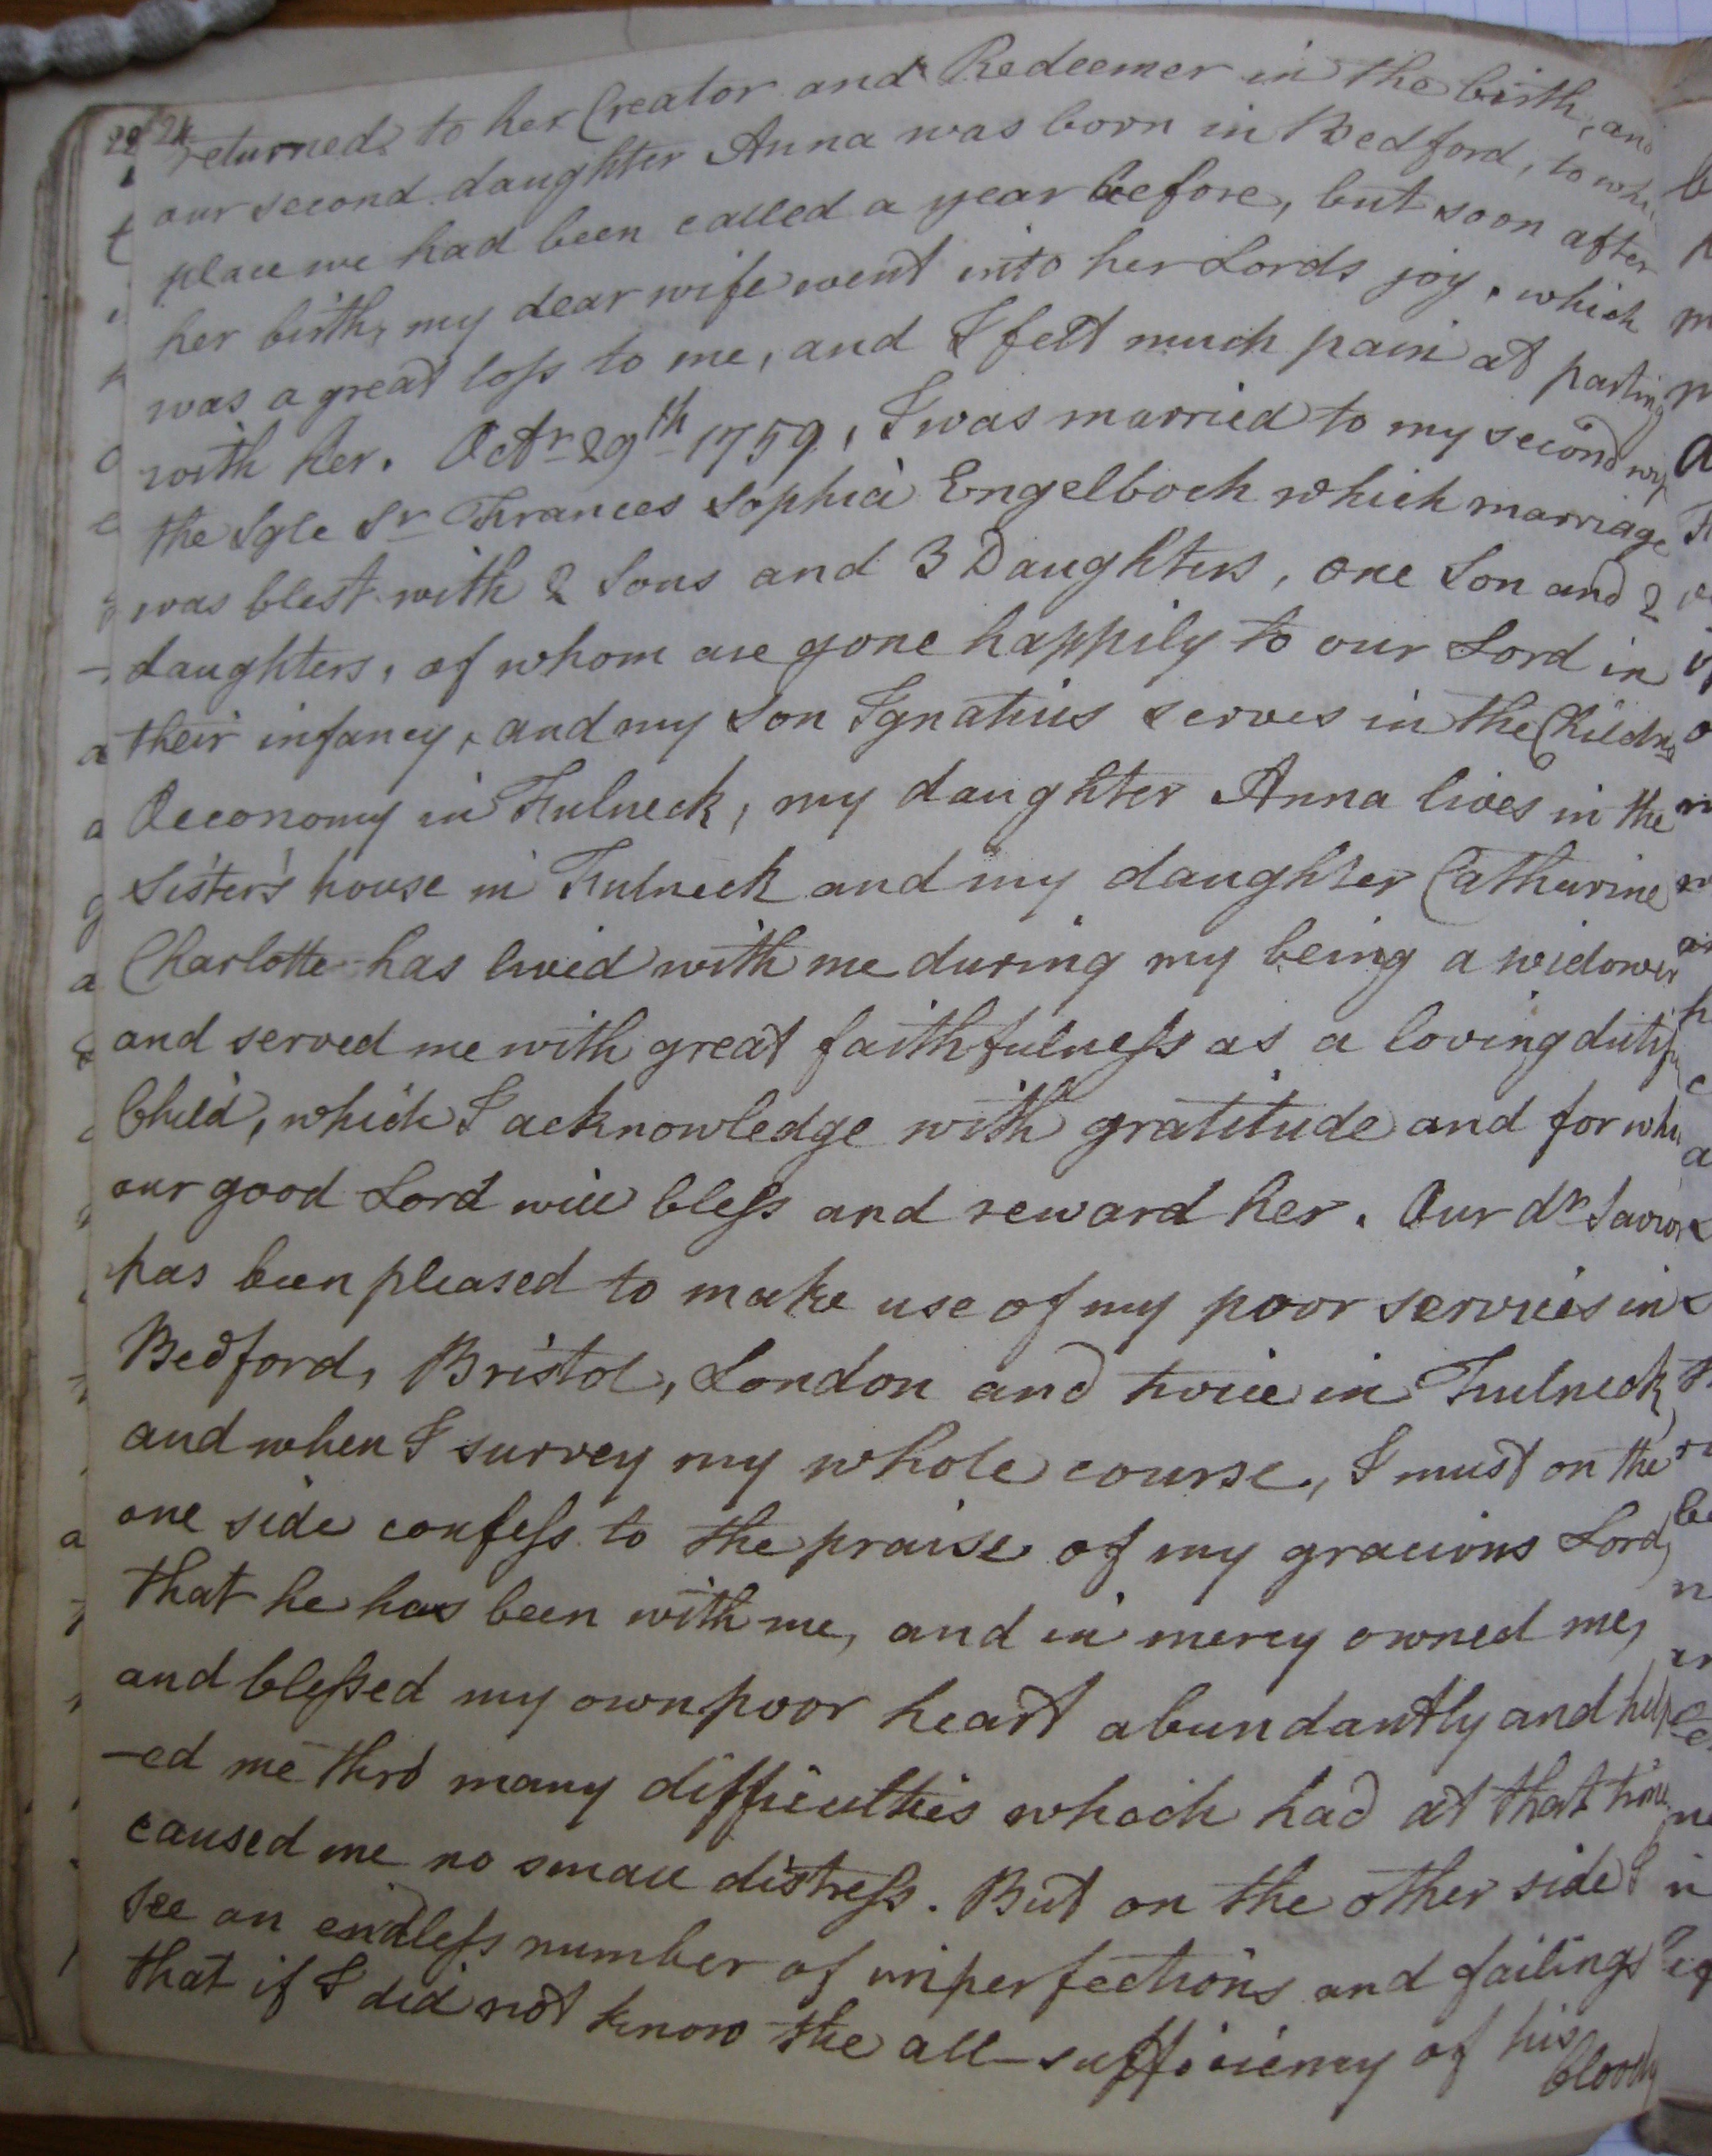 24
returned to her Creator and Redeemer in the birth, and
our second daughter Anna was born in Bedford, to whi
place we had been called a year before, but soon after
her birth, my dear wife went into her Lords joy, which
was a great loſs to me, and I felt much pain at parting
with her. Octr 29th 1759, I was married to my second wife
the Sgle Sr Frances Sophia Engelboch which marriage
was blest with 2 Sons and 3 Daughters, one Son and 2
daughters, of whom are gone happily to our Lord in
their infancy, and my Son Ignatius serves in the Childns
Oeconomy in Fulneck, my daughter Anna lives in the
Sister's house in Fulneck and my daughter Catharine
Charlotte has lived with me during my being a widower
and served me with great faithfulneſs as a loving dutifu
Child, which I acknowledge with gratitude and for whi
our good Lord will bleſs and reward her. Our dr Savior
has been pleased to make use of my poor services in
Bedford, Bristol, London and twice in Fulneck
and when I survey my whole course, I must on the
one side confeſs to the praise of my gracious Lord,
that he has been with me, and in mercy owned me,
and bleſsed my own poor heart abundantly and help
-ed me thro many difficulties which had at that time
caused me no small distreſs. But on the other side I
see an endleſs number of imperfections and failings
that if I did not know the all-sufficiency of his
bloody